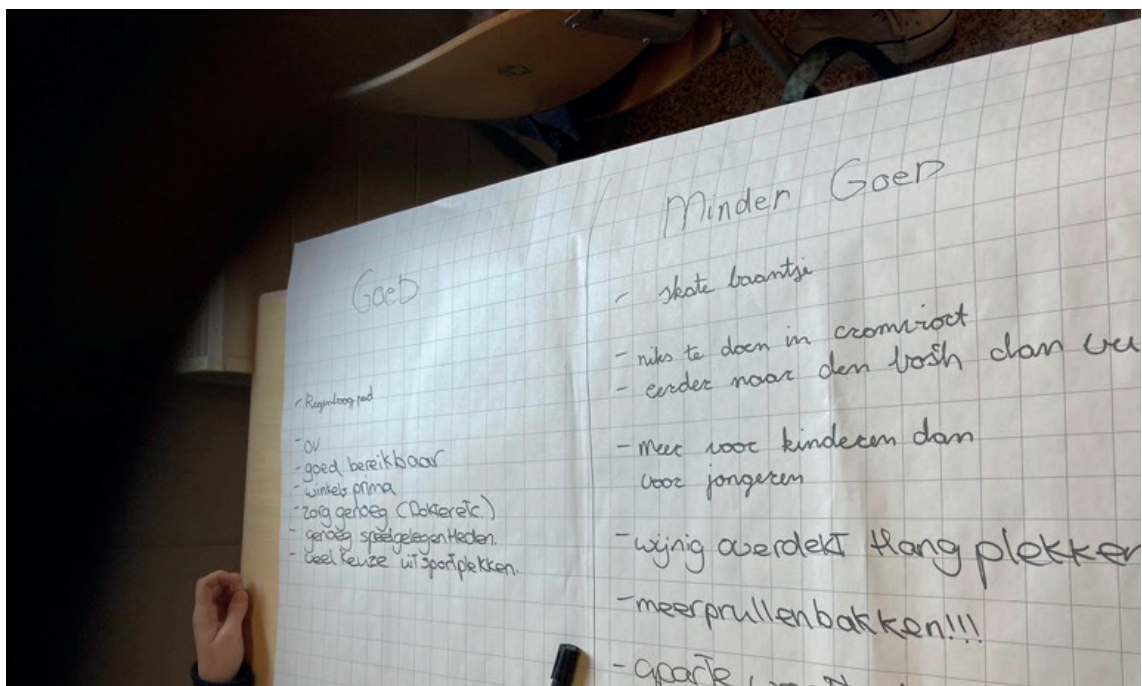 Goed
- Regenboog pad
- OV
- goed bereikbaar
- winkels prima
- zorg genoeg (Dokter etc.)
- genoeg speelgelegenheden.
- veel keuze uit sportplekken.
Minder Goed
- skate baantje
- niks te doen in cromvioct
- eerder naar den bosh dan vu
- meer voor kinderen dan
voor jongeren
- wijnig overdekt Hang plekken
- meer prullenbakken!!!
- aparte